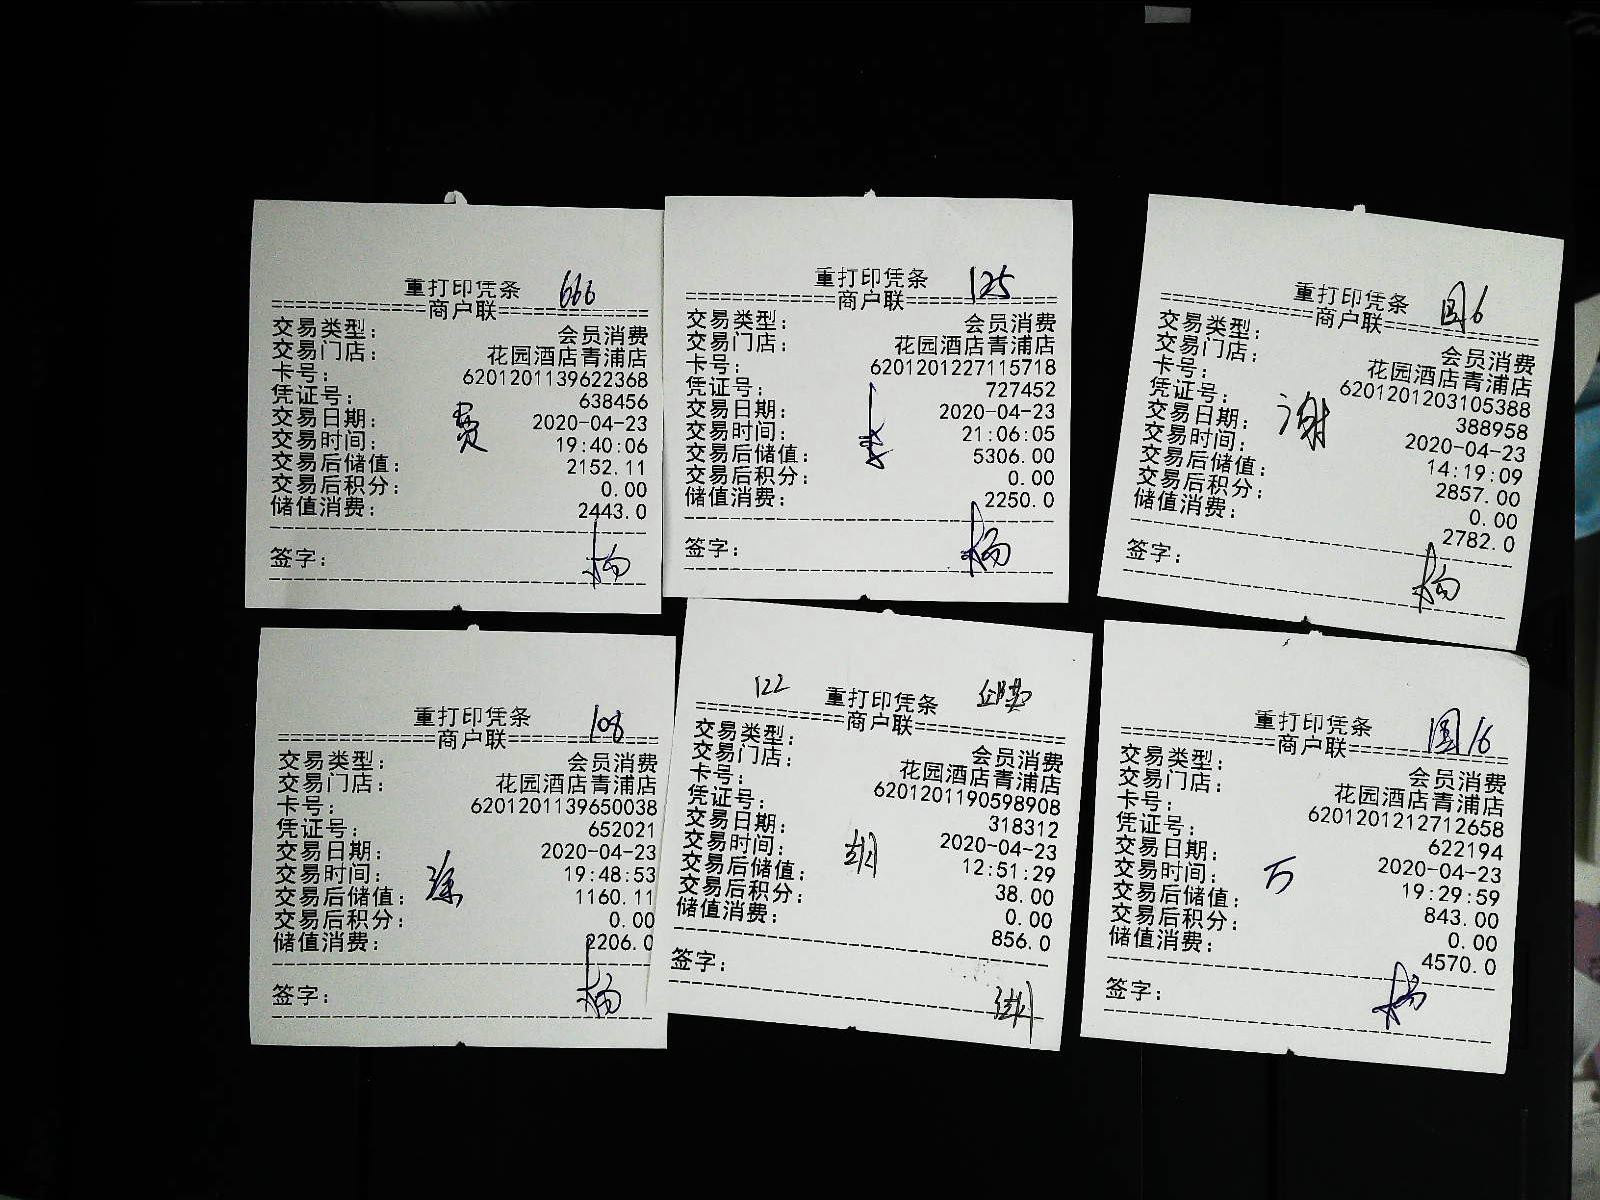 重打印凭条 666
==============商户联==============
交易类型: 会员消费
交易门店: 花园酒店青浦店
卡号: 6201201139622368
凭证号: 638456
交易日期: 2020-04-23
交易时间: 19:40:06
交易后储值: 2152.11
交易后积分: 0.00
储值消费: 2443.0
签字: 杨
重打印凭条 125
==============商户联==============
交易类型: 会员消费
交易门店: 花园酒店青浦店
卡号: 6201201227115718
凭证号: 727452
交易日期: 2020-04-23
交易时间: 21:06:05
交易后储值: 5306.00
交易后积分: 0.00
储值消费: 2250.0
签字: 杨
重打印凭条 园6
==============商户联==============
交易类型: 会员消费
交易门店: 花园酒店青浦店
卡号: 6201201203105388
凭证号: 388958
谢
交易日期: 2020-04-23
交易时间: 14:19:09
交易后储值: 2857.00
交易后积分: 0.00
储值消费: 2782.0
签字: 杨
重打印凭条 108
==============商户联==============
交易类型: 会员消费
交易门店: 花园酒店青浦店
卡号: 6201201139650038
凭证号: 652021
交易日期: 2020-04-23
交易时间: 19:48:53
涂
交易后储值: 1160.11
交易后积分: 0.00
储值消费: 2206.0
签字: 杨
122 重打印凭条
==============商户联==============
交易类型: 会员消费
交易门店: 花园酒店青浦店
卡号: 6201201190598908
凭证号: 318312
交易日期: 2020-04-23
交易时间: 12:51:29
交易后储值: 38.00
交易后积分: 0.00
储值消费: 856.0
签字:
重打印凭条 园16
==============商户联==============
交易类型: 会员消费
交易门店: 花园酒店青浦店
卡号: 6201201212712658
凭证号: 622194
交易日期: 2020-04-23
万
交易时间: 19:29:59
交易后储值: 843.00
交易后积分: 0.00
储值消费: 4570.0
签字: 杨